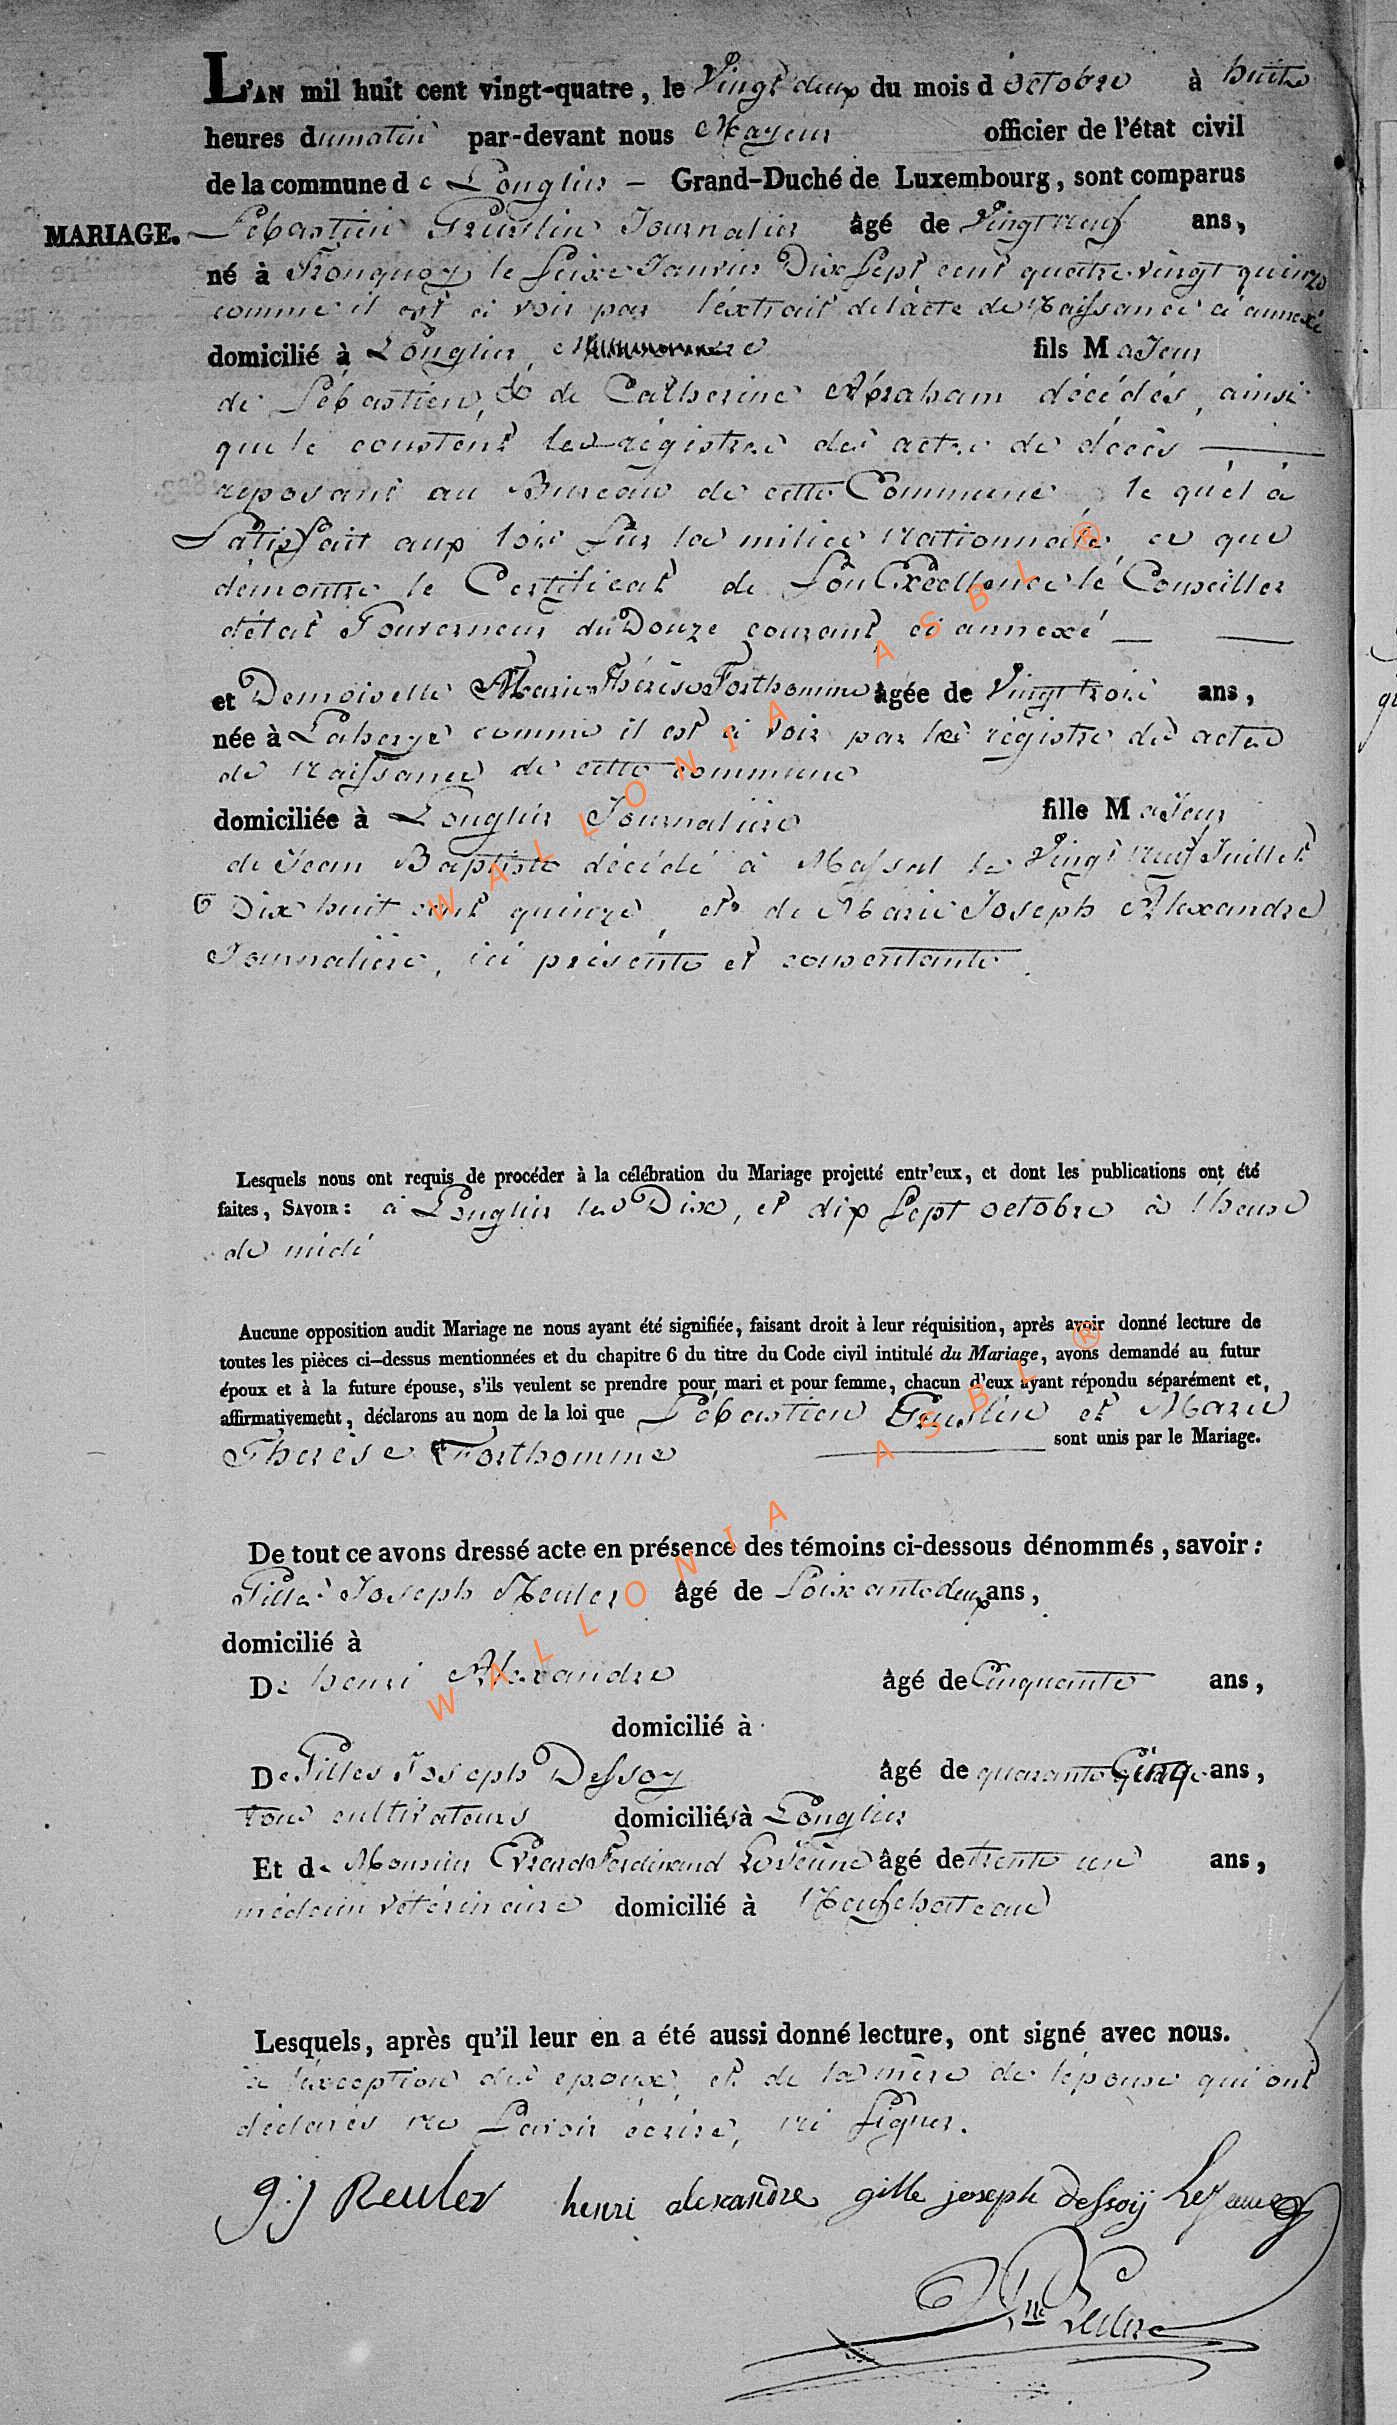 L'AN mil huit cent vingt-quatre, le Vingt deux du mois d'octobre à huite
heures du matin par-devant nous Mayeur officier de l'état civil
de la commune de Longlier – Grand-Duché de Luxembourg, sont comparus
MARIAGE. Sébastien Gruslin Journalier âgé de Vingt neuf ans,
né à Tronquoy le seize Janvier Dix sept cent quatre vingt quinze
comme il est à voir par l'extrait de l'acte de Naissance ci annexé
domicilié à Longlier fils Majeur
de Sébastien, & de Catherine Abraham décédés, ainsi
que le constent les régistres des actes de décès
reposant au Bureau de cette Commune, le quel à
Satisfait aux loix sur la milice Nationnale, ce que
démontre le Certificat de Son Excellence le Conseiller
d'état Gouverneur du Douze courant ci annexé
et Demoiselle Marie Thérèse Forthomme âgée de Vingt trois ans,
née à Laherye comme il est à voir par les régistre des actes
de Naissance de cette commune
domiciliée à Longlier Journalière fille Majeur
de Jean Baptiste décédé à Massul le Vingt neuf Juillet
Dix huit cent quinze, et de Marie Joseph Alexandre
Journalière, ici présente et consentante.
Lesquels nous ont requis de procéder à la célébration du Mariage projetté entr'eux, et dont les publications ont été
faites, SAVOIR: à Longlier les Dix, et dix sept octobre à l'heure
de midi
Aucune opposition audit Mariage ne nous ayant été signifiée, faisant droit à leur réquisition, après avoir donné lecture de
toutes les pièces ci-dessus mentionnées et du chapitre 6 du titre du Code civil intitulé du Mariage, avons demandé au futur
époux et à la future épouse, s'ils veulent se prendre pour mari et pour femme, chacun d'eux ayant répondu séparément et
affirmativement, déclarons au nom de la loi que Sébastien Gruslin et Marie
Therèse Forthomme sont unis par le Mariage.
De tout ce avons dressé acte en présence des témoins ci-dessous dénommés, savoir:
Gilles Joseph Reuler âgé de Soixante deux ans,
domicilié à
De henri Alexandre âgé de Cinquante ans,
domicilié à
De Gilles Joseph Dessoy âgé de quarante Cinq ans,
tous cultivateurs domiciliés à Longlier
Et de Monsieur Evrard Ferdinand LeJeune âgé de trente un ans,
médecin vétérinaire domicilié à Neufchateau
Lesquels, après qu'il leur en a été aussi donné lecture, ont signé avec nous.
à l'éxception des epoux, et de la mère de l'épouse qui ont
déclarés ne Savoir écrire, ni Signer.
g:j Reuler henri alexandre gille joseph dessoÿ LeJeune
WALLONIA ASBL ®
WALLONIA ASBL ®